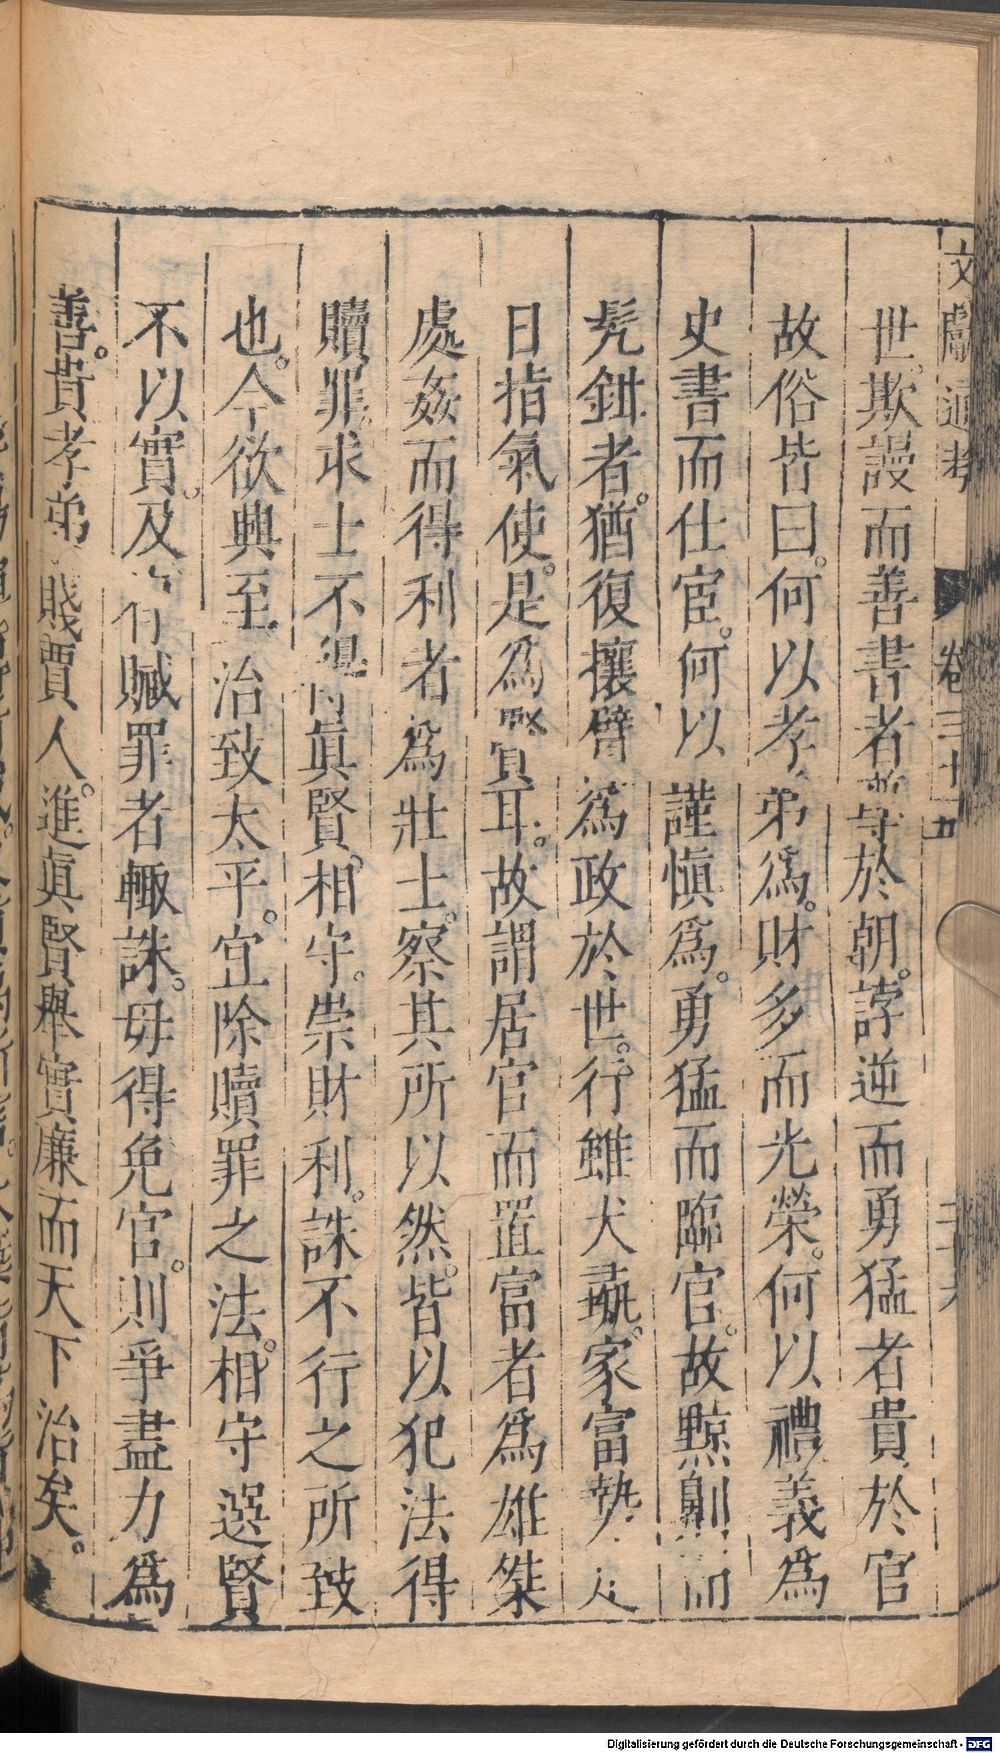 文獻通考 卷三十五 二十六
世。欺謾而善書者尊於朝。誖逆而勇猛者貴於官
故俗皆曰。何以孝弟爲。財多而光榮。何以禮義爲
史書而仕宦。何以謹慎爲。勇猛而臨官。故黥劓而
髠鉗者。猶復攘臂爲政於世。行雖犬彘。家富勢足
目指氣使。是爲賢耳。故謂居官而置富者爲雄桀
處姦而得利者爲壯士。察其所以然。皆以犯法得
贖罪。求士不得眞賢。相守。崇財利。誅不行之所致
也。今欲興至治致太平。宜除贖罪之法。相守選賢
不以實。及有贓罪者輒誅。毋得免官。則爭盡力爲
善。貴孝弟賤賈人。進眞賢舉實廉而天下治矣。
Digitalisierung gefördert durch die Deutsche Forschungsgemeinschaft - DFG